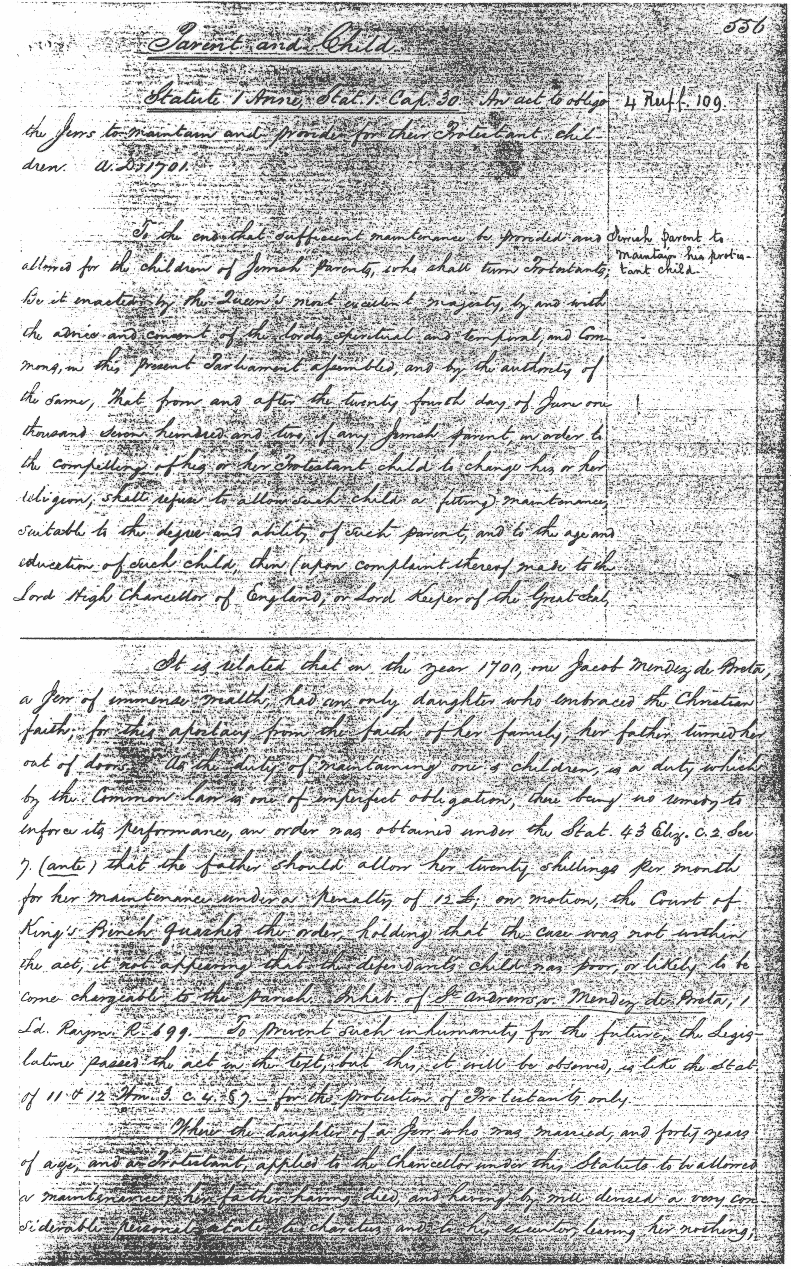 556
Parent and Child.
Statute 1 Anne, Stat. 1. Cap. 30. An act to oblige
4 Ruff. 109.
the Jews to maintain and provide for their Protestant chil-
dren. A.D. 1701.
To the end that sufficient maintenance be provided and
Jewish parent to
maintain his protes-
tant child.
allowed for the children of Jewish Parents, who shall turn Protestants;
be it enacted by the Queen's most excellent majesty, by and with
the advice and consent of the lords spiritual and temporal, and Com-
mons, in this present Parliament assembled, and by the authority of
the same, That from and after the twenty fourth day of June one
thousand seven hundred and two, if any Jewish parent, in order to
the compelling of his or her Protestant child to change his or her
religion, shall refuse to allow such child a fitting maintenance,
suitable to the degree and ability of such parent, and to the age and
education of such child, then (upon complaint thereof made to the
Lord High Chancellor of England, or Lord Keeper of the Great Seal,
It is related that in the year 1701, one Jacob Mendez de Breta,
a Jew of immense wealth, had an only daughter who embraced the Christian
faith; for this apostacy from the faith of her family, her father turned her
out of doors. As the duty of maintaining one's children, is a duty which
by the Common law is one of imperfect obligation, there being no remedy to
enforce its performance, an order was obtained under the Stat. 43 Eliz. c. 2 Sec
7. (ante) that the father should allow her twenty shillings per month
for her maintenance under a penalty of 12 £; on motion, the Court of
King's Bench quashed the order, holding that the case was not within
the act, it not appearing that the defendants child was poor, or likely to be-
come chargeable to the parish. Inhab. of St Andrews v. Mendez de Breta, 1
Ld. Raym. R. 699. To prevent such inhumanity for the future, the Legis-
lature passed the act in the text, but this, it will be observed, is like the Stat
of 11 & 12 Wm. 3. c. 4. §7. - for the protection of Protestants only.
Where the daughter of a Jew who was married, and forty years
of age, and a Protestant, applied to the Chancellor under this Statute to be allowed
a maintenance, her father having died, and having by will devised a very con-
siderable personal estate to charities and to his executor, leaving her nothing,